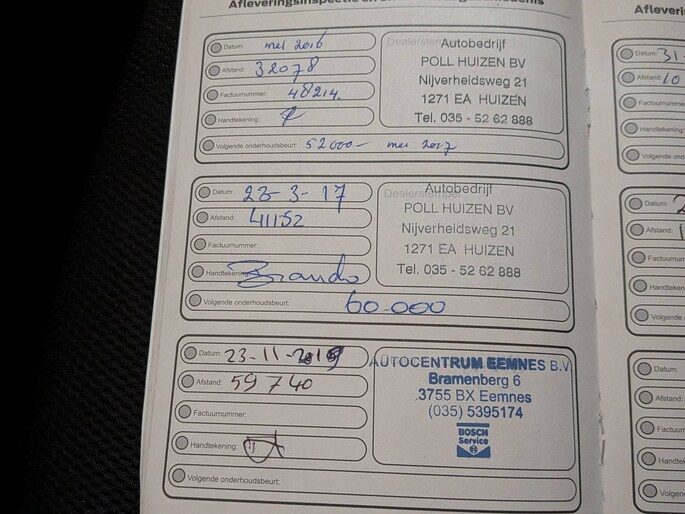 Afleveringsinspectie en
Datum: mei 2016
Afstand: 32078
Factuurnummer: 48214.
Handtekening:
Volgende onderhoudsbeurt: 52000- mei 2017
Dealerstempel
Autobedrijf
POLL HUIZEN BV
Nijverheidsweg 21
1271 EA HUIZEN
Tel. 035 - 52 62 888
Datum: 23-3-17
Afstand: 41152
Factuurnummer:
Handtekening: Brando
Volgende onderhoudsbeurt: 60.000
Dealerstempel
Autobedrijf
POLL HUIZEN BV
Nijverheidsweg 21
1271 EA HUIZEN
Tel. 035 - 52 62 888
Datum: 23-11-2019
Afstand: 59740
Factuurnummer:
Handtekening:
Volgende onderhoudsbeurt:
AUTOCENTRUM EEMNES B.V.
Bramenberg 6
3755 BX Eemnes
(035) 5395174
BOSCH
Service
Afleveri
Datum: 31-
Afstand: 10
Factuurnumme
Handtekening
Volgende ond
Datum: 2
Afstand: 1
Factuurnum
Handteken
Volgende
Datum:
Afstand:
Factuur
Handte
Volgen